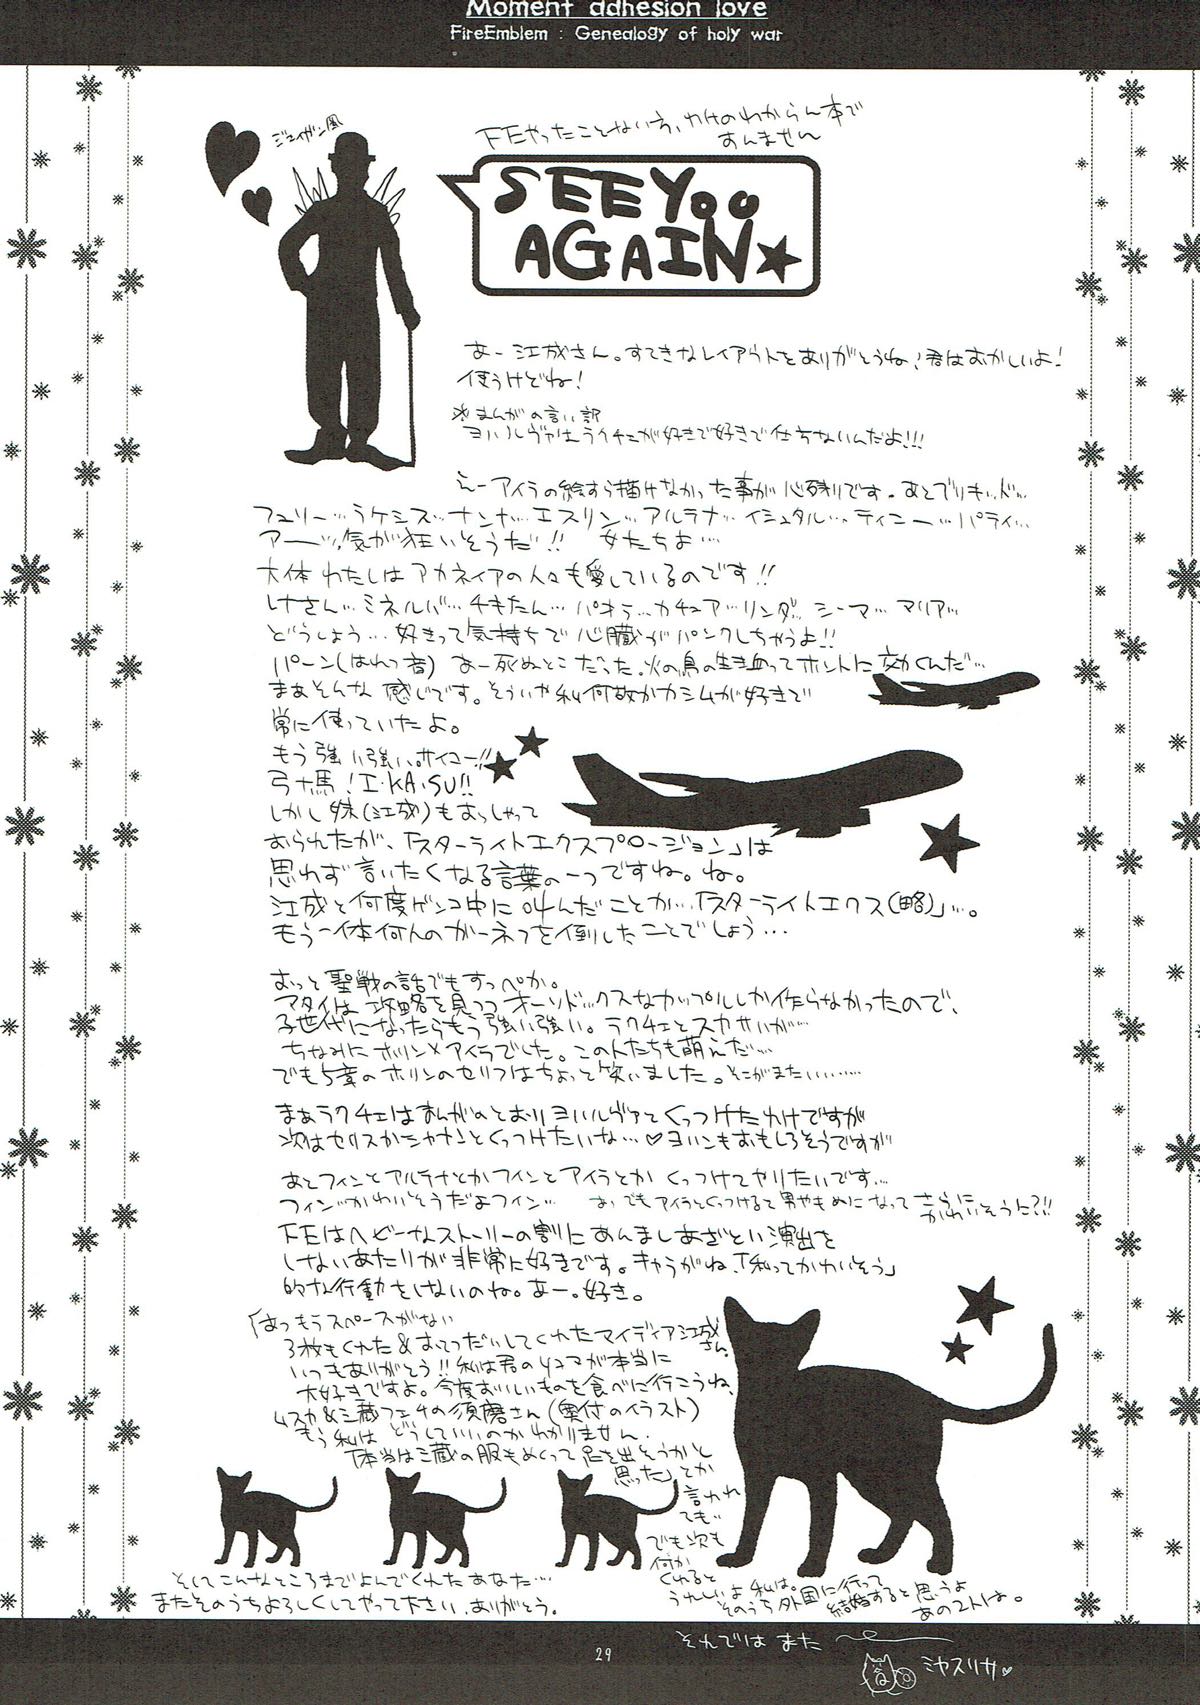 Moment adhesion love
FireEmblem : Genealogy of holy war
ジェイガン風
FEやったことない方、わけのわからん本で
すんません
SEE YOU
AGAIN★
あー江成さん。すてきなレイアウトをありがとうね!君はおかしいよ!
使うけどね!
*まんがの言い訳
ヨハルヴァはラクチェが好きで好きで仕方ないんだよ!!!
えーアイラの絵すら描けなかった事が心残りです。あとブリギッド…
フュリー…ラケシス…ナンナ…エスリン…アルテナ…イシュタル…ティニー…パティ…
アーッ、気が狂いそうだ!! 女たちよ…
大体わたしはアカネイアの人々も愛しているのです!!
レナさん…ミネルバ…チキたん…パオラ…カチュア…リンダ…シーマ…マリア…
どうしよう…好きって気持ちで心臓がパンクしちゃうよ!!
パーン(はれつ音) あー死ぬとこだった。火の鳥の生き血ってホントに効くんだ…
まあそんな感じです。そういや私何故かカシムが好きで
常に使っていたよ。
もう強い強い。サイコー!!
弓+馬!I・KA・SU!!
しかし妹(江成)もおっしゃって
おられたが、「スターライトエクスプロージョン」は
思わず言いたくなる言葉の一つですね。ね。
江成と何度ゲンコ中に叫んだことか…「スターライトエクス(略)」…。
もう一体何人のガーネフを倒したことでしょう…
おっと聖戦の話でもすっぺか。
アタイは攻略を見つつオーソドックスなカップルしか作らなかったので、
子世代になったらもう強い強い。ラクチェとスカサハが…
ちなみにホリン×アイラでした。この人たちも萌えだ…
でも5章のホリンのセリフはちょっと笑いました。そこがまたいい………
まぁラクチェはまんがのとおりヨハルヴァとくっつけたわけですが
次はセリスかシャナンとくっつけたいな…♡ヨハンもおもしろそうですが
あとフィンとアルテナとかフィンとアイラとか くっつけてやりたいです…
フィン…かわいそうだよフィン… あっでもアイラとくっつけると男やもめになって さらに
かわいそうに?!!
FEはヘビーなストーリーの割にあんましあざとい演出を
しないあたりが非常に好きです。キャラがね、「私ってかわいそう」
的な行動をしないのね。あー。好き。
はっもうスペースがない
3枚もくれた&おてつだいしてくれたマイディア江成
さん。
いつもありがとう!!私は君の4コマが本当に
大好きですよ。今度おいしいものを食べに行こうね、
ムスカ&三蔵フェチの須磨さん(奥付のイラスト)
もう私はどうしていいのかわかりません。
「本当は三蔵の服もめくって足を出そうかと
思った」とか
言われ
ても…
でも次も
何か
くれると
うれしいよ私は。
そのうち外国に行って
結婚すると思うよ
あの2人は。
そしてこんなところまでよんでくれたあなた…
またそのうちよろしくしてやって下さい。ありがとう。
それではまた
29
ミヤスリサ♥